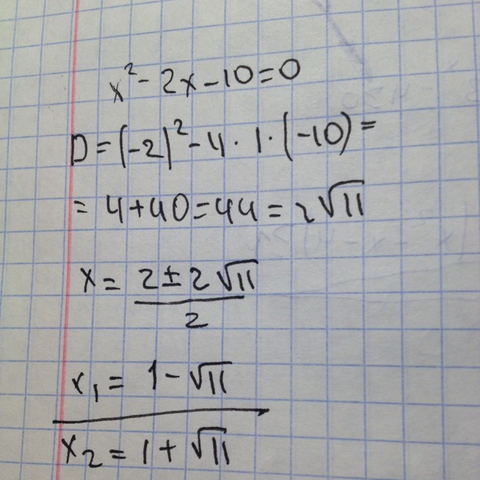 x² - 2x - 10 = 0
D = (-2)² - 4 · 1 · (-10) =
= 4 + 40 = 44 = 2√11
x = (2 ± 2√11) / 2
x₁ = 1 - √11
x₂ = 1 + √11